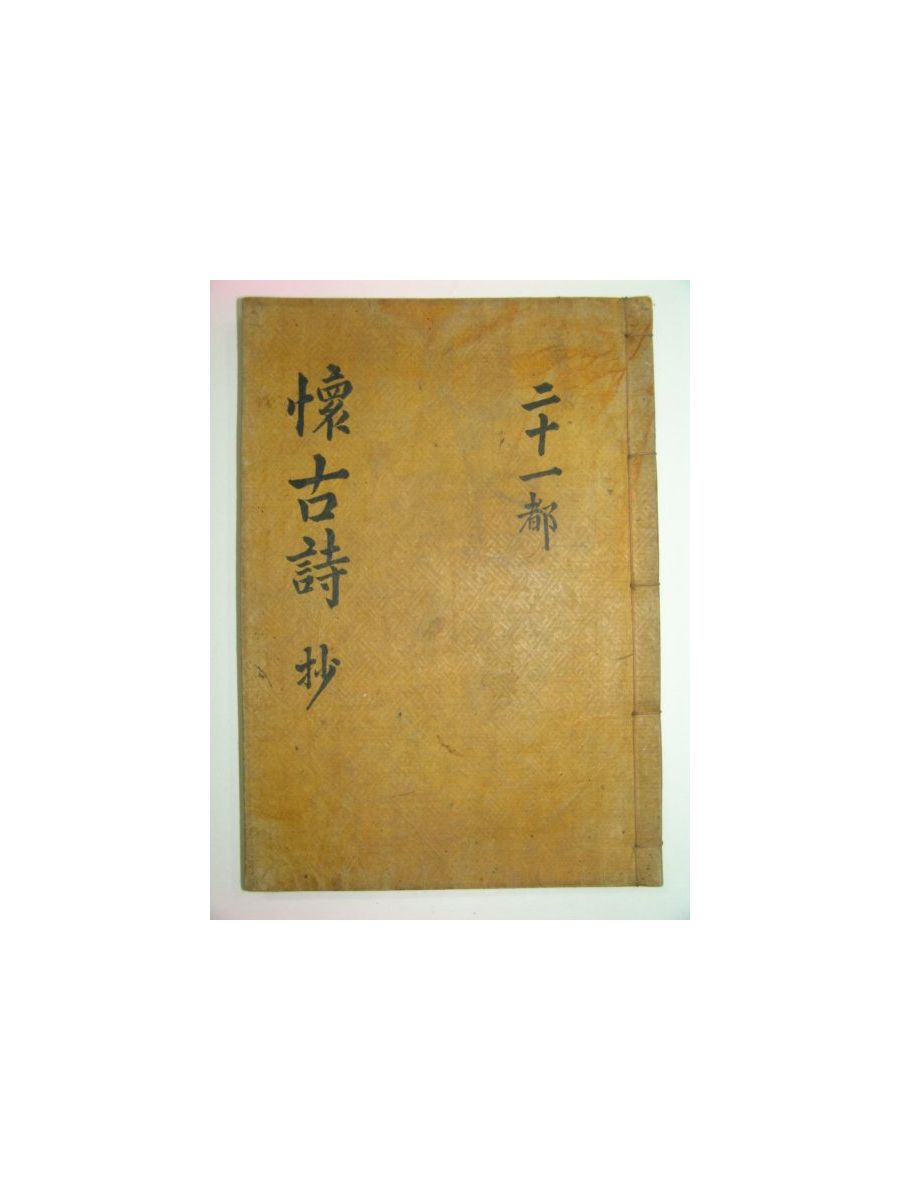 二十一都
懷古詩 抄